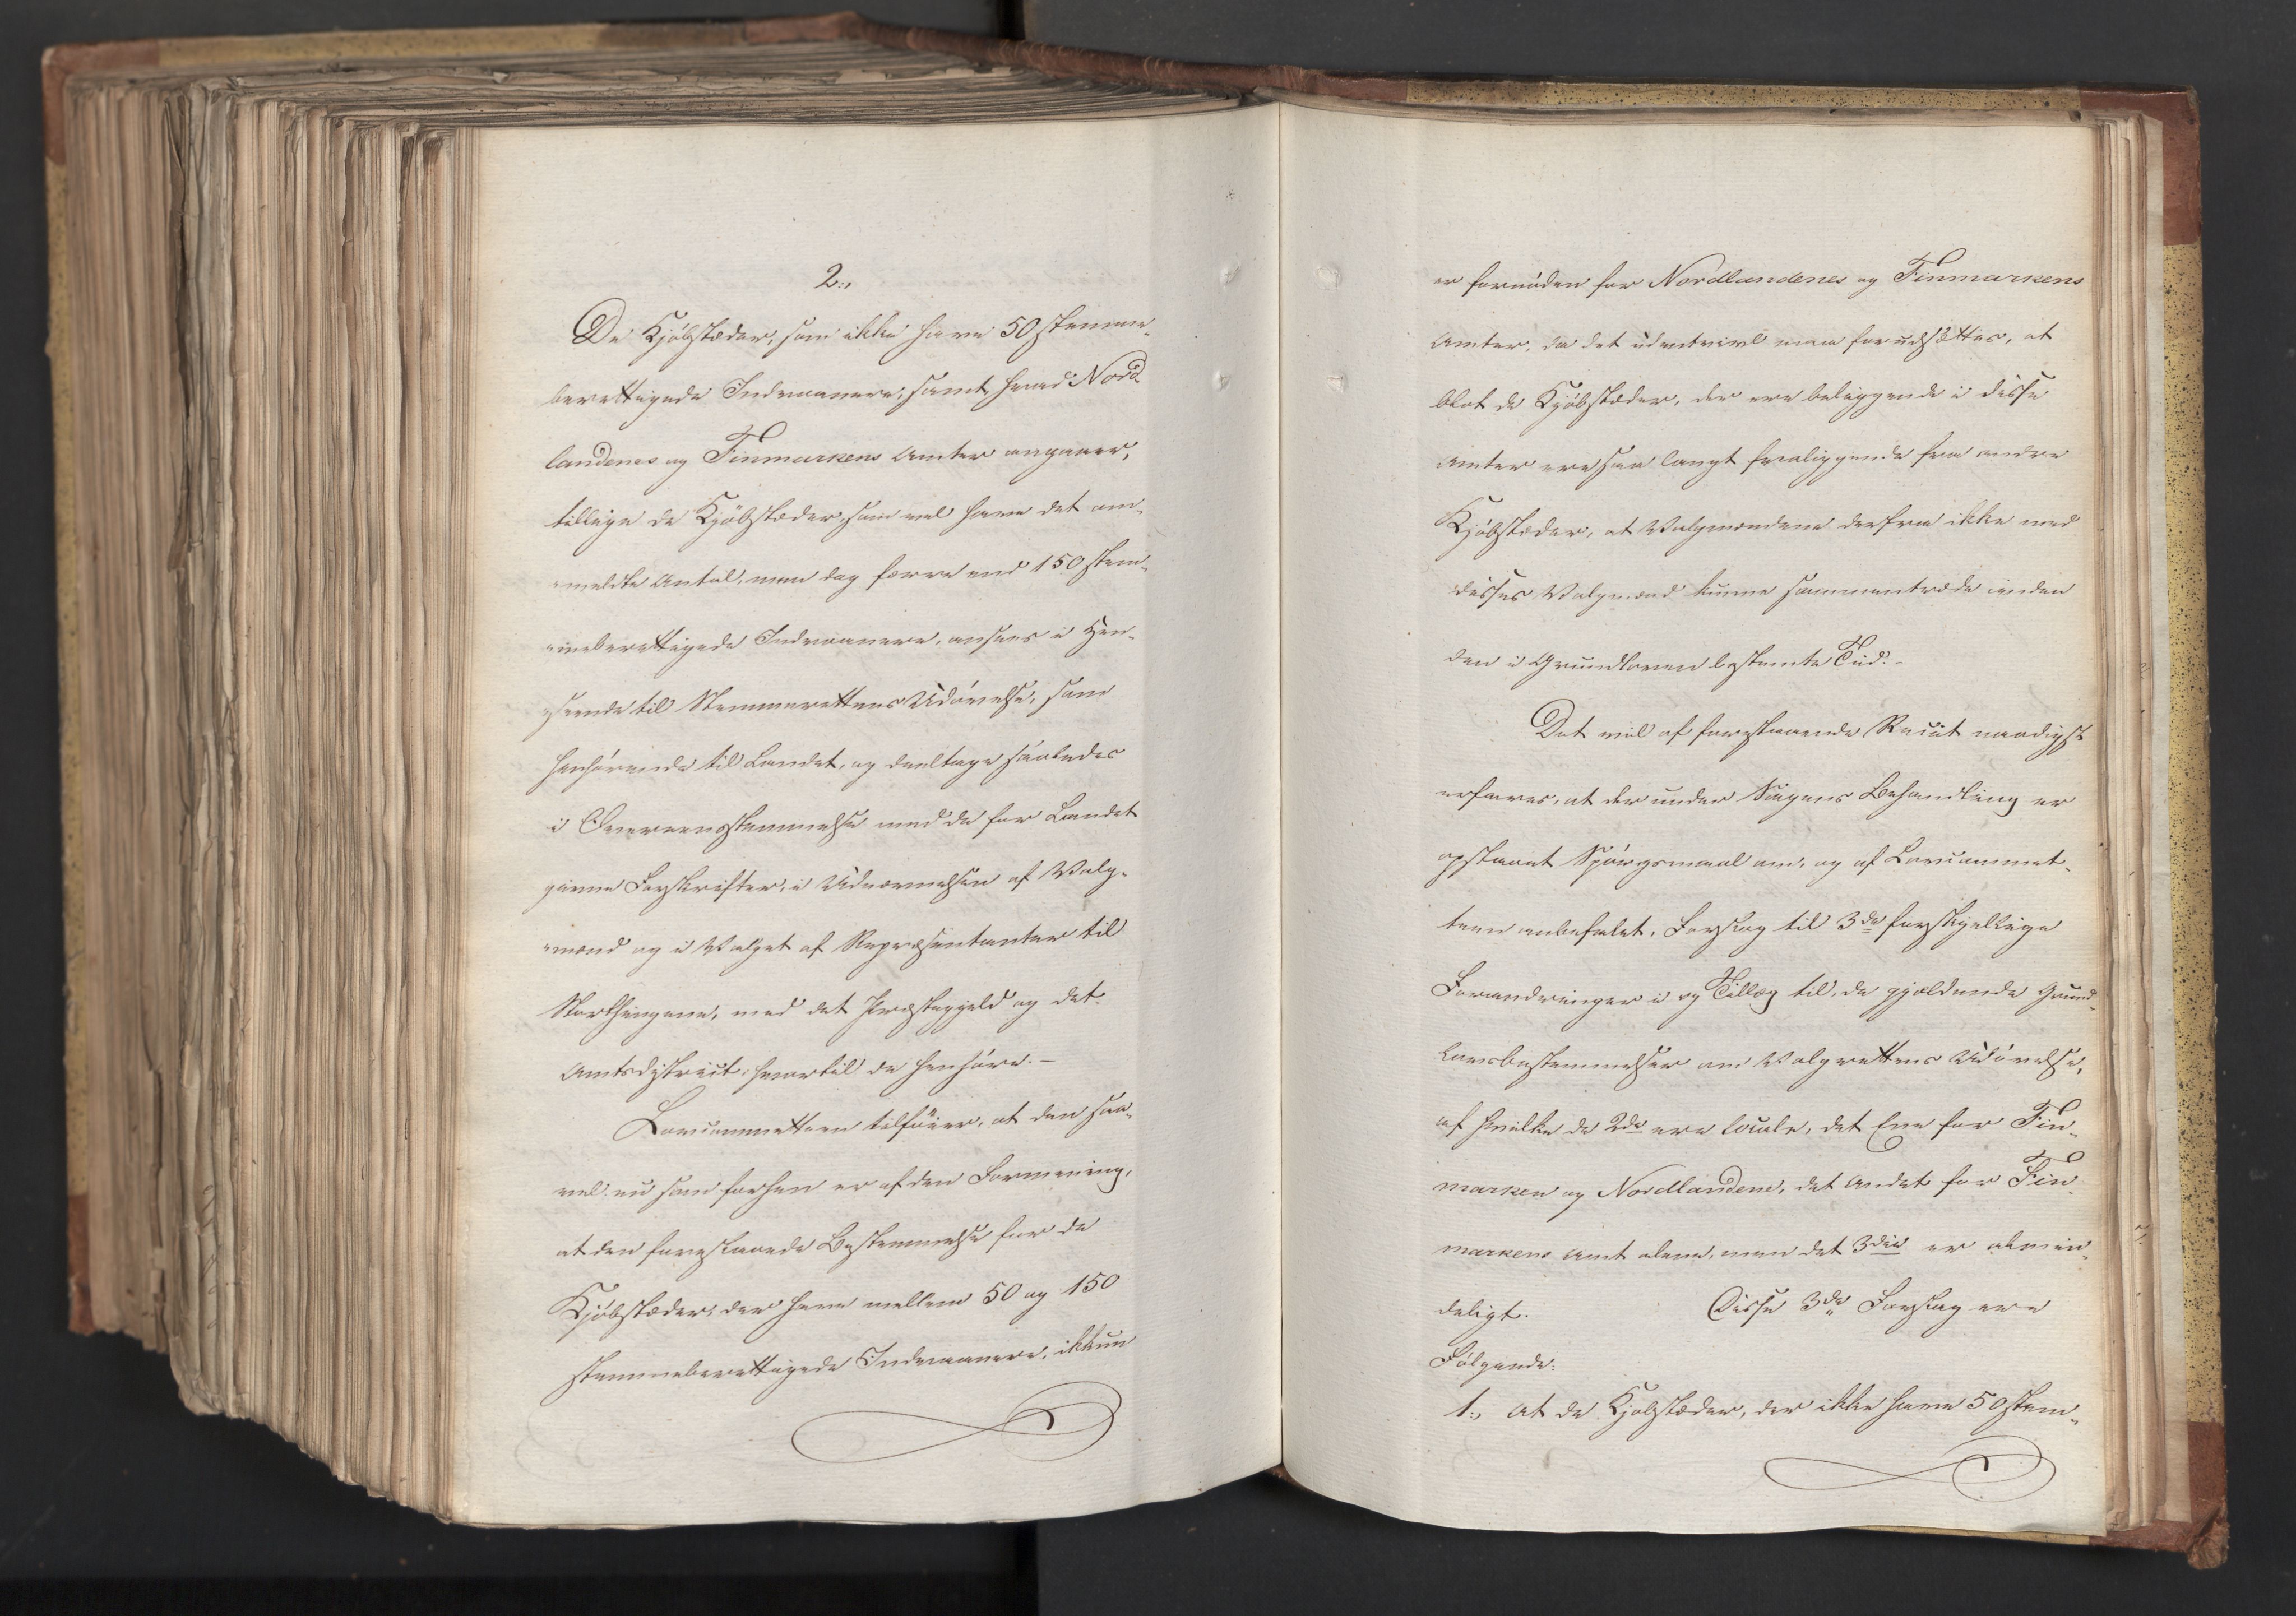 2.,
De Kjöbstæder, som ikke have 50 stemme-
berettigede Indvaanere, samt hvad Nord-
landenes og Finmarkens Amter angaaer,
tillige de Kjöbstæder, som vel have det an-
"meldte Antal, men dog færre end 150 stem-
"meberettigede Indvaanere, ansees i Hen-
seende til Stemmerettens Udövelse, som
henhörende til Landet, og deeltage saaledes
i Overeensstemmelse med de for Landet
givne Forskrifter, i Udnævnelsen af Valg-
"mænd og i Valget af Repræsentanter til
Storthingene, med det Præstegjeld og det
Amtsdistrict, hvortil de henhöre. –
Lovcommitteen tilföier, at den saa-
vel nu som forhen er af den Formening,
at den foreslaaede Bestemmelse for de
Kjöbstæder, der have mellem 50 og 150
stemmeberettigede Indvaanere, ikkun
er fornöden for Nordlandenes og Finmarkens
Amter, da det udentvivl maa forudsættes, at
blot de Kjöbstæder, der ere beliggende i disse
Amter ere saa langt fraliggende fra andre
Kjöbstæder, at Valgmændene derfra ikke med
disses Valgmænd kunne sammentræde inden
den i Grundloven bestemte Tiid. –
Det vil af forestaaende Recit naadigst
erfares, at der under Sagens Behandling er
opstaaet Spörgsmaal om, og af Lovcommit-
teen anbefalet, Forslag til 3de forskjellige
Forandringer i og Tillæg til, de gjældende Grund-
lovsbestemmelser om Valgrettens Udövelse,
af hvilke de 2de ere locale, det Ene for Fin-
marken og Nordlandene, det Andet for Fin-
markens Amt alene, men det 3die er almin-
deligt. Disse 3de Forslag ere
Fölgende:
1., At de Kjöbstæder, der ikke have 50 stem-